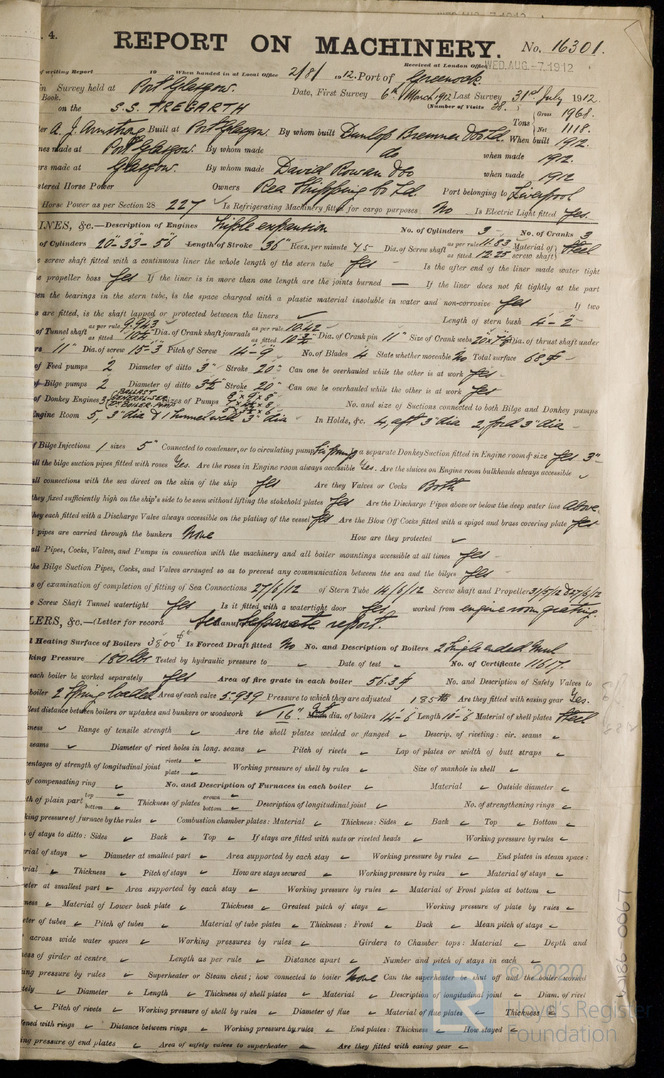 4.
REPORT ON MACHINERY. No. 16301.
Received at London Office WED. AUG. -7. 1912
of writing Report 19 When handed in at Local Office 2/8/1912. Port of Greenock
in Survey held at Port Glasgow. Date, First Survey 6th March 1912 Last Survey 31st July 1912.
Book. (Number of Visits 28.)
on the S.S. TREGARTH Tons Gross 1968. Net 1118.
A. J. Armstrong Built at Port Glasgow. By whom built Dunlop Bremner & Co Ld. When built 1912.
made at Port Glasgow. By whom made do when made 1912.
made at Glasgow. By whom made David Rowan & Co when made 1912.
Horse Power Owners Rea Shipping Co Ld Port belonging to Liverpool
Horse Power as per Section 28 227 Is Refrigerating Machinery fitted for cargo purposes No Is Electric Light fitted Yes.
INES, &c.—Description of Engines Triple expansion No. of Cylinders 3 No. of Cranks 3
of Cylinders 20"-33"-56" Length of Stroke 36" Revs. per minute 75 Dia. of Screw shaft as per rule 11.83 as fitted 12.25 Material of screw shaft Steel
screw shaft fitted with a continuous liner the whole length of the stern tube Yes Is the after end of the liner made water tight
propeller boss Yes If the liner is in more than one length are the joints burned — If the liner does not fit tightly at the part
the bearings in the stern tube, is the space charged with a plastic material insoluble in water and non-corrosive Yes If two
are fitted, is the shaft lapped or protected between the liners ✓ Length of stern bush 4'-2"
of Tunnel shaft as per rule 9.943 as fitted 10¼" Dia. of Crank shaft journals as per rule 10.42 as fitted 10¾" Dia. of Crank pin 11" Size of Crank webs Dia. of thrust shaft under
11" Dia. of screw 15'-3" Pitch of Screw 14'-9" No. of Blades 4 State whether moveable No Total surface 68
of Feed pumps 2 Diameter of ditto 3" Stroke 20" Can one be overhauled while the other is at work Yes.
of Bilge pumps 2 Diameter of ditto 3½" Stroke 20" Can one be overhauled while the other is at work Yes
of Donkey Engines 3 Sizes of Pumps No. and size of Suctions connected to both Bilge and Donkey pumps
Engine Room 5, 3" dia & 1 tunnel well 3" dia In Holds, &c. 4, aft 3" dia 2, ford 3" dia.
of Bilge Injections 1 sizes 5" Connected to condenser, or to circulating pump Is a separate Donkey Suction fitted in Engine room & size Yes 3"
all the bilge suction pipes fitted with roses Yes. Are the roses in Engine room always accessible Yes. Are the sluices on Engine room bulkheads always accessible ✓
all connections with the sea direct on the skin of the ship Yes Are they Valves or Cocks Both
they fixed sufficiently high on the ship's side to be seen without lifting the stokehold plates Yes Are the Discharge Pipes above or below the deep water line Above
they each fitted with a Discharge Valve always accessible on the plating of the vessel Yes Are the Blow Off Cocks fitted with a spigot and brass covering plate Yes
pipes are carried through the bunkers None How are they protected ✓
all Pipes, Cocks, Valves, and Pumps in connection with the machinery and all boiler mountings accessible at all times Yes
the Bilge Suction Pipes, Cocks, and Valves arranged so as to prevent any communication between the sea and the bilges Yes
of examination of completion of fitting of Sea Connections 27/6/12 of Stern Tube 14/6/12 Screw shaft and Propeller 31/5/12 & 27/6/12
Screw Shaft Tunnel watertight Yes Is it fitted with a watertight door Yes worked from engine room grating.
LERS, &c.—(Letter for record See separate report.
Heating Surface of Boilers 3800 Is Forced Draft fitted No No. and Description of Boilers 2 Single ended Mult
king Pressure 180 lbs Tested by hydraulic pressure to ✓ Date of test ✓ No. of Certificate 11617.
each boiler be worked separately Yes Area of fire grate in each boiler 56.3 No. and Description of Safety Valves to
boiler 2 Spring loaded Area of each valve 5.939 Pressure to which they are adjusted 185 lbs Are they fitted with easing gear Yes.
distance between boilers or uptakes and bunkers or woodwork 16" dia. of boilers 14'-6" Length 10'-6" Material of shell plates Steel
Range of tensile strength Are the shell plates welded or flanged Descrip. of riveting: cir. seams
seams Diameter of rivet holes in long. seams Pitch of rivets Lap of plates or width of butt straps
percentages of strength of longitudinal joint rivets plate Working pressure of shell by rules Size of manhole in shell
of compensating ring No. and Description of Furnaces in each boiler Material Outside diameter
of plain part top bottom Thickness of plates crown bottom Description of longitudinal joint No. of strengthening rings
king pressure of furnace by the rules Combustion chamber plates: Material Thickness: Sides Back Top Bottom
of stays to ditto: Sides Back Top If stays are fitted with nuts or riveted heads Working pressure by rules
of stays Diameter at smallest part Area supported by each stay Working pressure by rules End plates in steam space:
Thickness Pitch of stays How are stays secured Working pressure by rules Material of stays
at smallest part Area supported by each stay Working pressure by rules Material of Front plates at bottom
Material of Lower back plate Thickness Greatest pitch of stays Working pressure of plate by rules
of tubes Pitch of tubes Material of tube plates Thickness: Front Back Mean pitch of stays
across wide water spaces Working pressures by rules Girders to Chamber tops: Material Depth and
of girder at centre Length as per rule Distance apart Number and pitch of stays in each
pressure by rules Superheater or Steam chest; how connected to boiler None Can the superheater be shut off and the boiler worked
Diameter Length Thickness of shell plates Material Description of longitudinal joint Diam. of rivet
Pitch of rivets Working pressure of shell by rules Diameter of flue Material of flue plates Thickness
with rings Distance between rings Working pressure by rules End plates: Thickness How stayed
pressure of end plates Area of safety valves to superheater Are they fitted with easing gear
© 2020
Lloyd's Register
Foundation